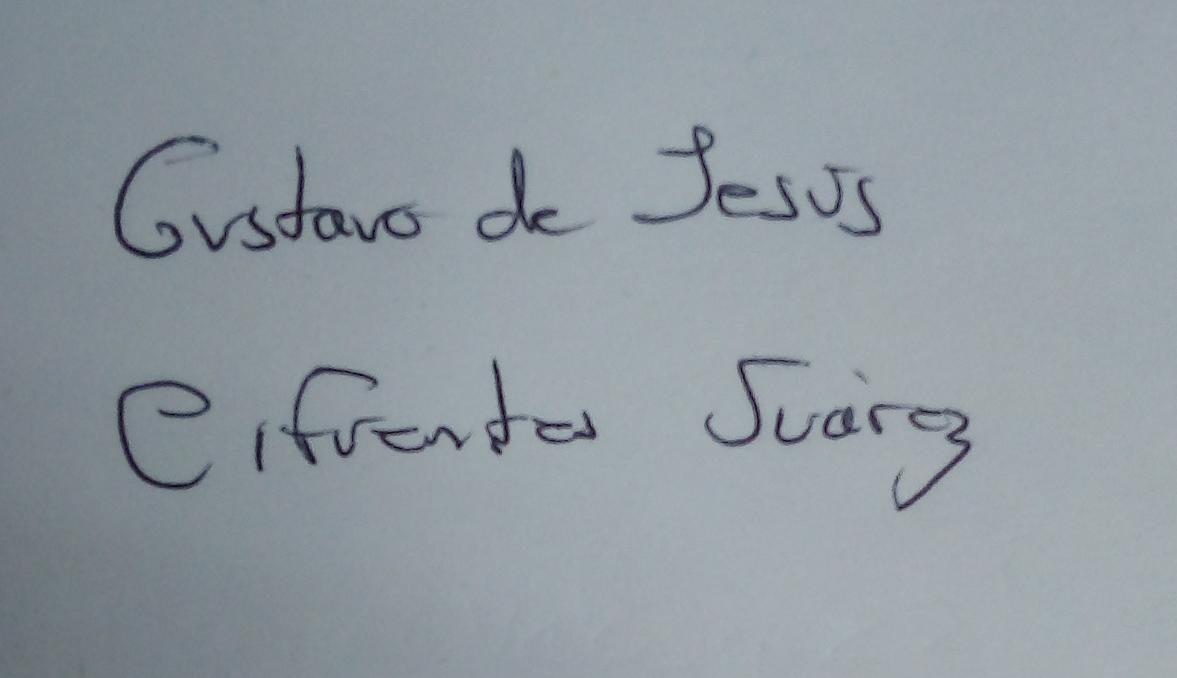 Gustavo de Jesus
Cifuentes Juárez